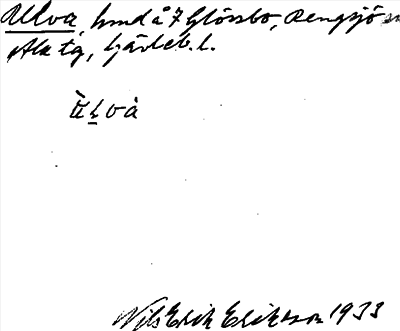 Ulva, hmd å 7 Glössbo, Rengsjö sn
Ala tg, Gävleb. l.
ùḻvà
Nils Erik Eriksson 1933